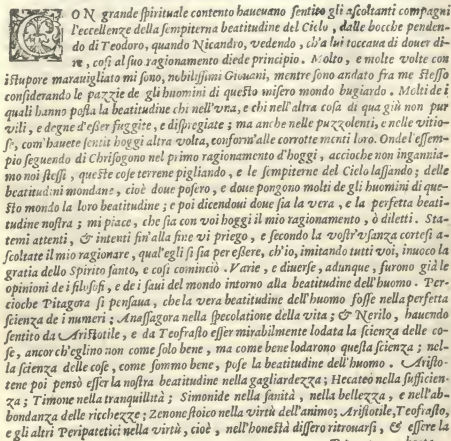 CON grande spirituale contento haueuano sentito gli ascoltanti compagni
l'eccellenze della sempiterna beatitudine del Cielo, dalle bocche penden-
do di Teodoro, quando Nicandro, vedendo, ch'a lui toccaua di douer di-
re, così al suo ragionamento diede principio. Molto, e molte volte con
istupore marauigliato mi sono, nobilissimi Giouani, mentre sono andato fra me stesso
considerando le pazzie de gli huomini di questo misero mondo bugiardo. Molti de i
quali hanno posta la beatitudine chi nell'vna, e chi nell'altra cosa di qua giù non pur
vili, e degne d'esser fuggite, e dispregiate; ma anche nelle puzzolenti, e nelle vitio-
se, com'hauete sentit hoggi altra volta, conform'alle corrotte menti loro. Onde l'essem-
pio seguendo di Chrisogono nel primo ragionamento d'hoggi, accioche non ingannia-
mo noi stessi, queste cose terrene pigliando, e le sempiterne del Cielo lassando; delle
beatitudini mondane, cioè doue posero, e doue pongono molti de gli huomini di que-
sto mondo la loro beatitudine; e poi dicendoui doue sia la vera, e la perfetta beati-
tudine nostra; mi piace, che sia con voi hoggi il mio ragionamento, ò diletti. Sta-
temi attenti, & intenti fin'alla fine vi priego, e secondo la vostr'vsanza cortesi a-
scoltate il mio ragionare, qual'egli si sia per essere, ch'io, imitando tutti voi, inuoco la
gratia dello Spirito santo, e così comincio. Varie, e diuerse, adunque, furono già le
opinioni de i filosofi, e de i saui del mondo intorno alla beatitudine dell'huomo. Per-
cioche Pitagora si pensaua, che la vera beatitudine dell'huomo fosse nella perfetta
scienza de i numeri; Anassagora nella specolatione della vita; & Nerilo, hauendo
sentito da Aristotile, e da Teofrasto esser mirabilmente lodata la scienza delle co-
se, ancorch'eglino non come solo bene, ma come bene lodarono questa scienza; nel-
la scienza delle cose, come sommo bene, pose la beatitudine dell'huomo. Aristo-
tene poi pensò esser la nostra beatitudine nella gagliardezza; Hecateo nella sufficien-
za; Timone nella tranquillità; Simonide nella sanità, nella bellezza, e nell'ab-
bondanza delle ricchezze; Zenone stoico nella virtù dell'animo; Aristotile, Teofrasto,
e gli altri Peripatetici nella virtù, cioè, nell'honestà dissero ritrouarsi, & essere la